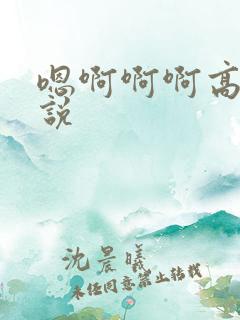 嗯啊啊啊高
說
沈晨曦
未经同意禁止转载